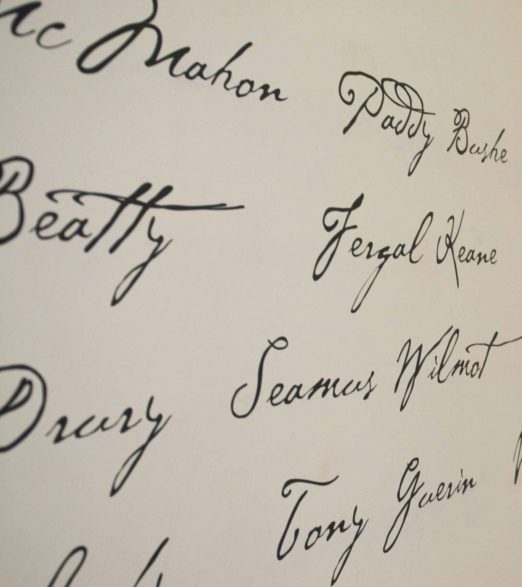 Mc Mahon
Paddy Bushe
Beatty
Fergal Keane
Drury
Seamus Wilmot
Tony Guerin